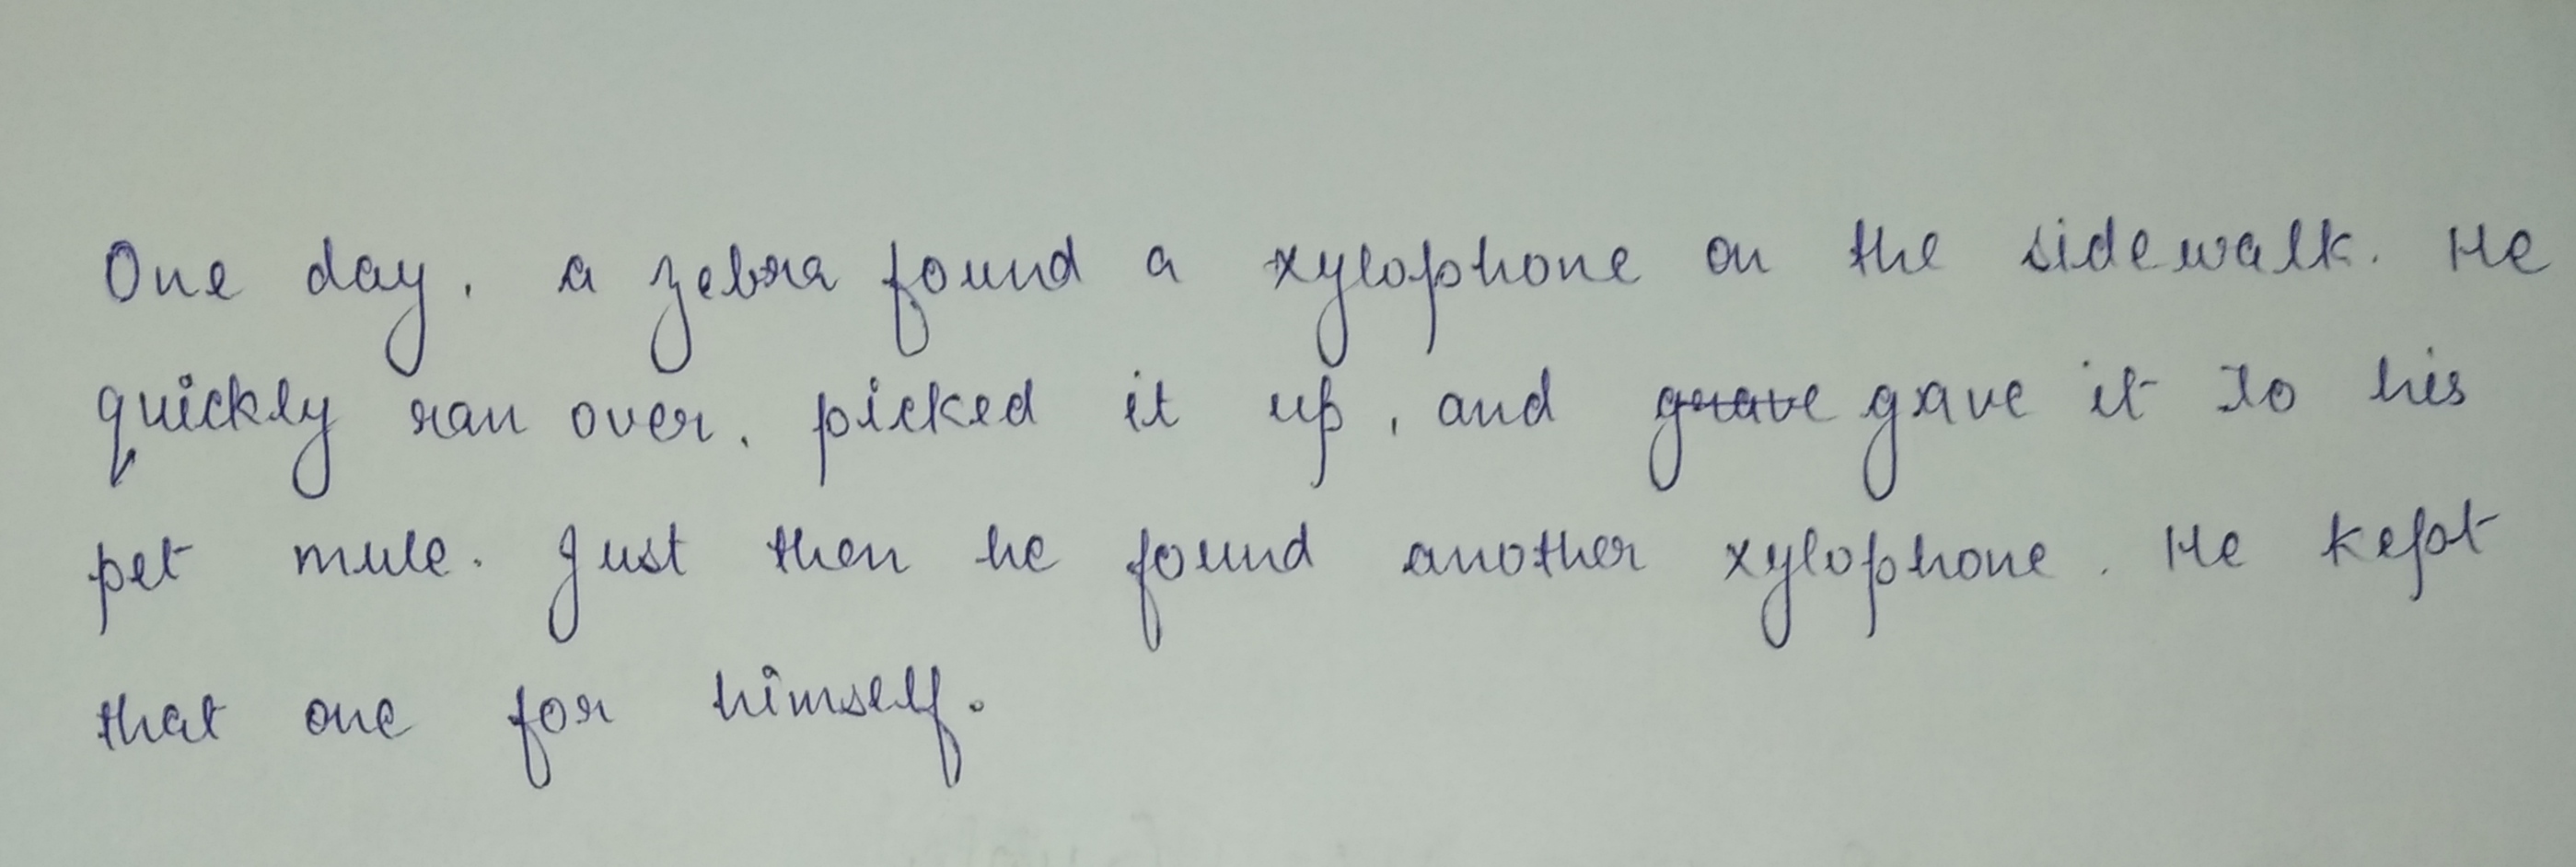 One day, a zebra found a xylophone on the sidewalk. He
quickly ran over, picked it up, and gave it to his
pet mule. Just then he found another xylophone. He kept
that one for himself.